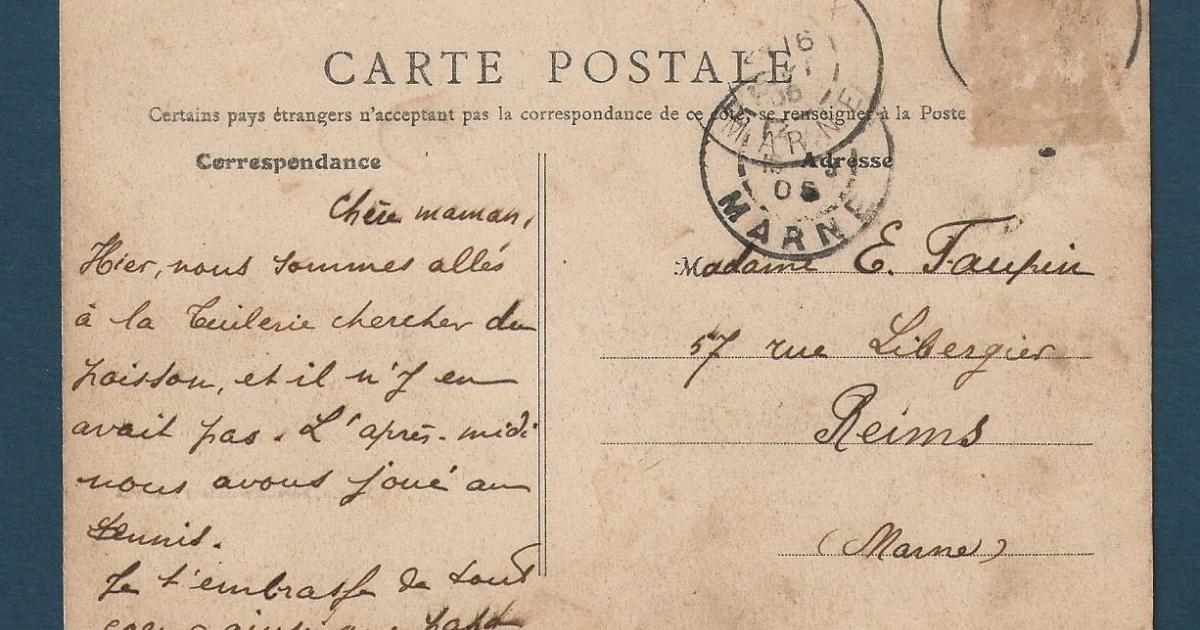 CARTE POSTALE
Certains pays étrangers n'acceptant pas la correspondance de ce côté, se renseigner à la Poste
Correspondance
Chère maman,
Hier, nous sommes allés
à la Tuilerie chercher du
poisson, et il n'y en
avait pas. L'après-midi
nous avons joué au
tennis.
Je t'embrasse de tout
coeur ainsi que papa
Adresse
Madame E. Faupin
57 rue Libergier
Reims
(Marne)
16
06
MARNE
05
MARNE